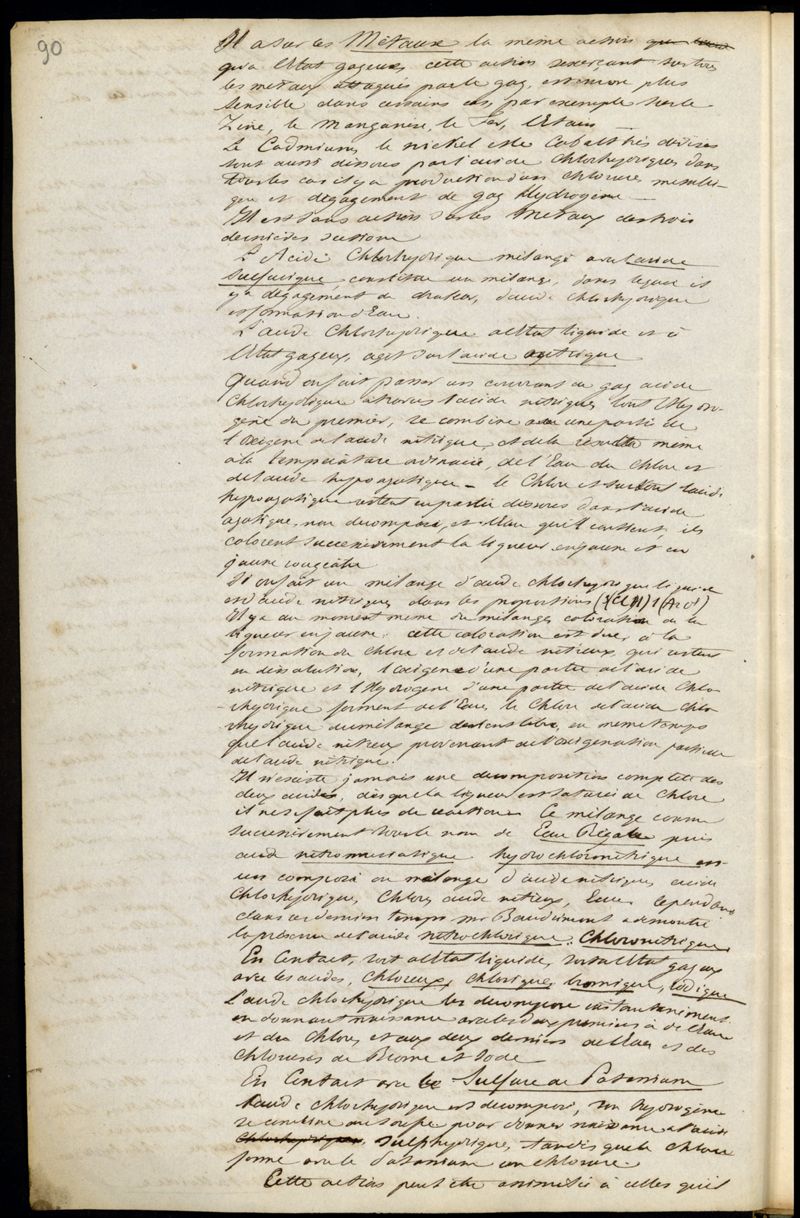 90
Il a sur les Métaux la même action
qu'à l'Etat gazeux, cette action s'exerçant sur tous
les métaux attaqués par le gaz, est encore plus
sensible dans certains cas, par exemple sur le
Zinc, le Manganèse, le Fer, l'Etain
Le Cadmium, le nickel et le Cobalt très divisés
sont aussi dissous par l'acide Chlorhydrique, dans
tous les cas il y a production d'un chlorure métalli-
que et dégagement de gaz Hydrogène
Il est sans action sur les Métaux des trois
dernières sections
L'Acide Chlorhydrique mélangé avec l'acide
Sulfurique, constitue un mélange, dans lequel il
y a dégagement de chaleur, d'acide chlorhydrique
et formation d'Eau.
L'acide Chlorhydrique à l'Etat liquide et à
l'Etat gazeux, agit sur l'acide azotique
Quand on fait passer un courant de gaz acide
Chlorhydrique à travers l'acide nitrique, tout l'Hydro-
gène du premier, se combine à une partie de
l'oxigène de l'acide nitrique, et de là résulte même
à la température ordinaire, de l'Eau du Chlore et
de l'acide hypoazotique - le Chlore et surtout l'acide
hypoazotique restent en partie dissous dans l'acide
azotique non décomposé, et l'Eau qu'il contient, ils
colorent successivement la liqueur en jaune et en
jaune rougeâtre
Si on fait un mélange d'acide chlorhydrique liquide
et d'acide nitrique, dans les proportions
Il y a au moment même du mélange, coloration de la
liqueur en jaune. cette coloration est due, à la
formation du Chlore et de l'acide nitreux, qui restent
en dissolution, l'oxigène d'une partie de l'acide
nitrique et l'Hydrogène d'une partie de l'acide Chlo-
-rhydrique forment de l'Eau, le Chlore de l'acide chlo-
-rhydrique du mélange devient libre, en même temps
que l'acide nitreux provenant de l'oxigénation partielle
de l'acide nitrique.
Il n'existe jamais une décomposition complète des
deux acides, dès que la liqueur est saturée de Chlore
il ne se fait plus de réaction. Ce mélange connu
successivement sous le nom de Eau Régale puis
acide nitromuriatique hydrochloronitrique est
un composé ou mélange d'acide nitrique, acide
Chlorhydrique, Chlore, acide nitreux, Eau. Cependant
dans ces derniers temps Mr Baudrimont a démontré
la présence de l'acide nitrochlorique. Chloronitrique.
En Contact, soit à l'Etat liquide, soit à l'Etat gazeux
avec les acides, Chloreux, Chlorique, bromique, iodique
L'acide chlorhydrique les décompose instantanément
en donnant naissance avec les deux premiers à de l'Eau
et du Chlore, et aux deux derniers de l'Eau et des
Chlorures de Brome et Iode
En Contact avec le Sulfure de Potassium
l'acide chlorhydrique est décomposé, son hydrogène
se combine au soufre pour donner naissance à l'acide
Chlorhydrique, sulphydrique, tandis que le chlore
forme avec le Potassium un chlorure.
Cette action peut être assimilée à celles qu'il